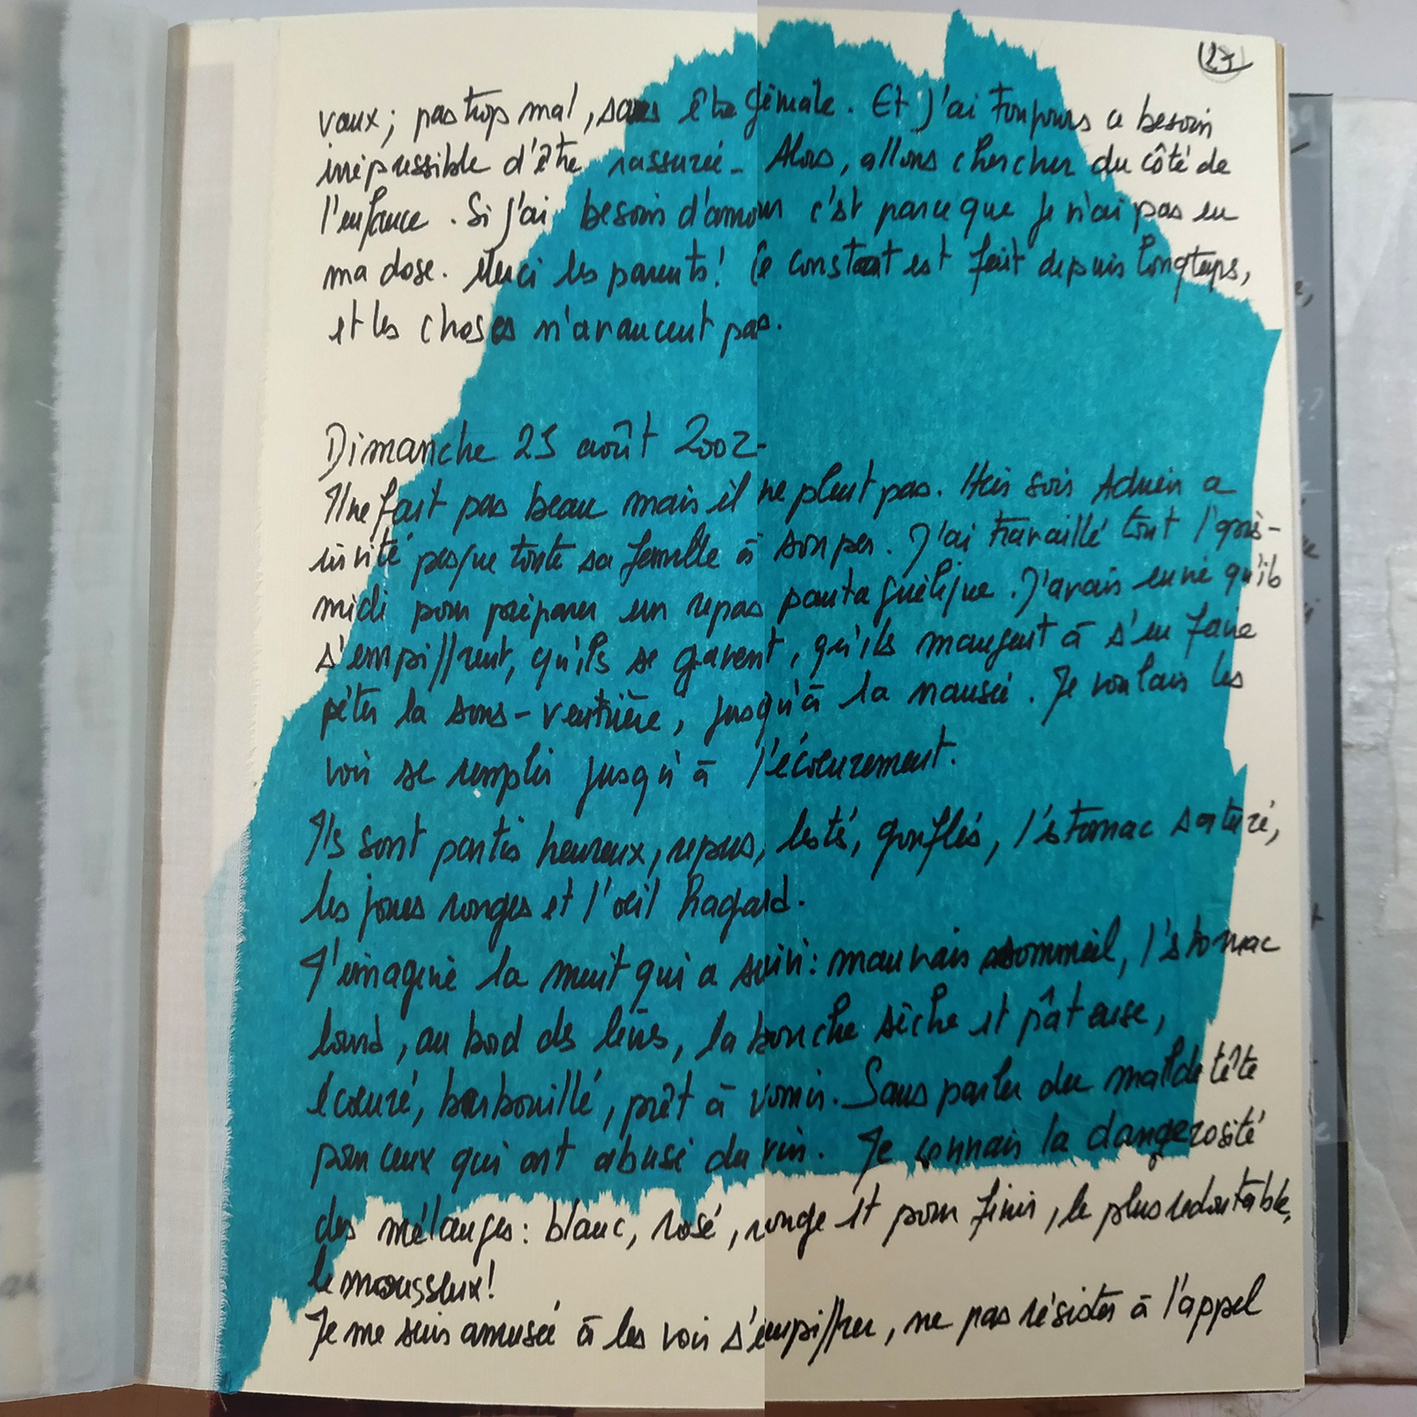 27
vaux ; pas trop mal, sans être géniale. Et j'ai toujours ce besoin
irrépressible d'être rassurée - Alors, allons chercher du côté de
l'enfance. Si j'ai besoin d'amour c'est parce que je n'ai pas eu
ma dose. Merci les parents! Ce constat est fait depuis longtemps,
et les choses n'avancent pas.
Dimanche 25 août 2002-
Il ne fait pas beau mais il ne pleut pas. Hier soir Adrien a
invité presque toute sa famille à souper. J'ai travaillé tout l'après-
midi pour préparer un repas pantagruélique. J'avais envie qu'ils
s'empiffrent, qu'ils se gavent, qu'ils mangent à s'en faire
péter la sous-ventrière, jusqu'à la nausée. Je voulais les
voir se remplir jusqu'à l'écoeurement.
Ils sont partis heureux, repus, lestés, gonflés, l'estomac saturé,
les joues rouges et l'oeil hagard.
J'imagine la nuit qui a suivi : mauvais sommeil, l'estomac
lourd, au bord des lèvres, la bouche sèche et pâteuse,
écoeuré, barbouillé, prêt à vomir. Sans parler du mal de tête
pour ceux qui ont abusé du vin. Je connais la dangerosité
des mélanges : blanc, rosé, rouge et pour finir, le plus redoutable,
le mousseux!
Je me suis amusée à les voir s'empiffrer, ne pas résister à l'appel